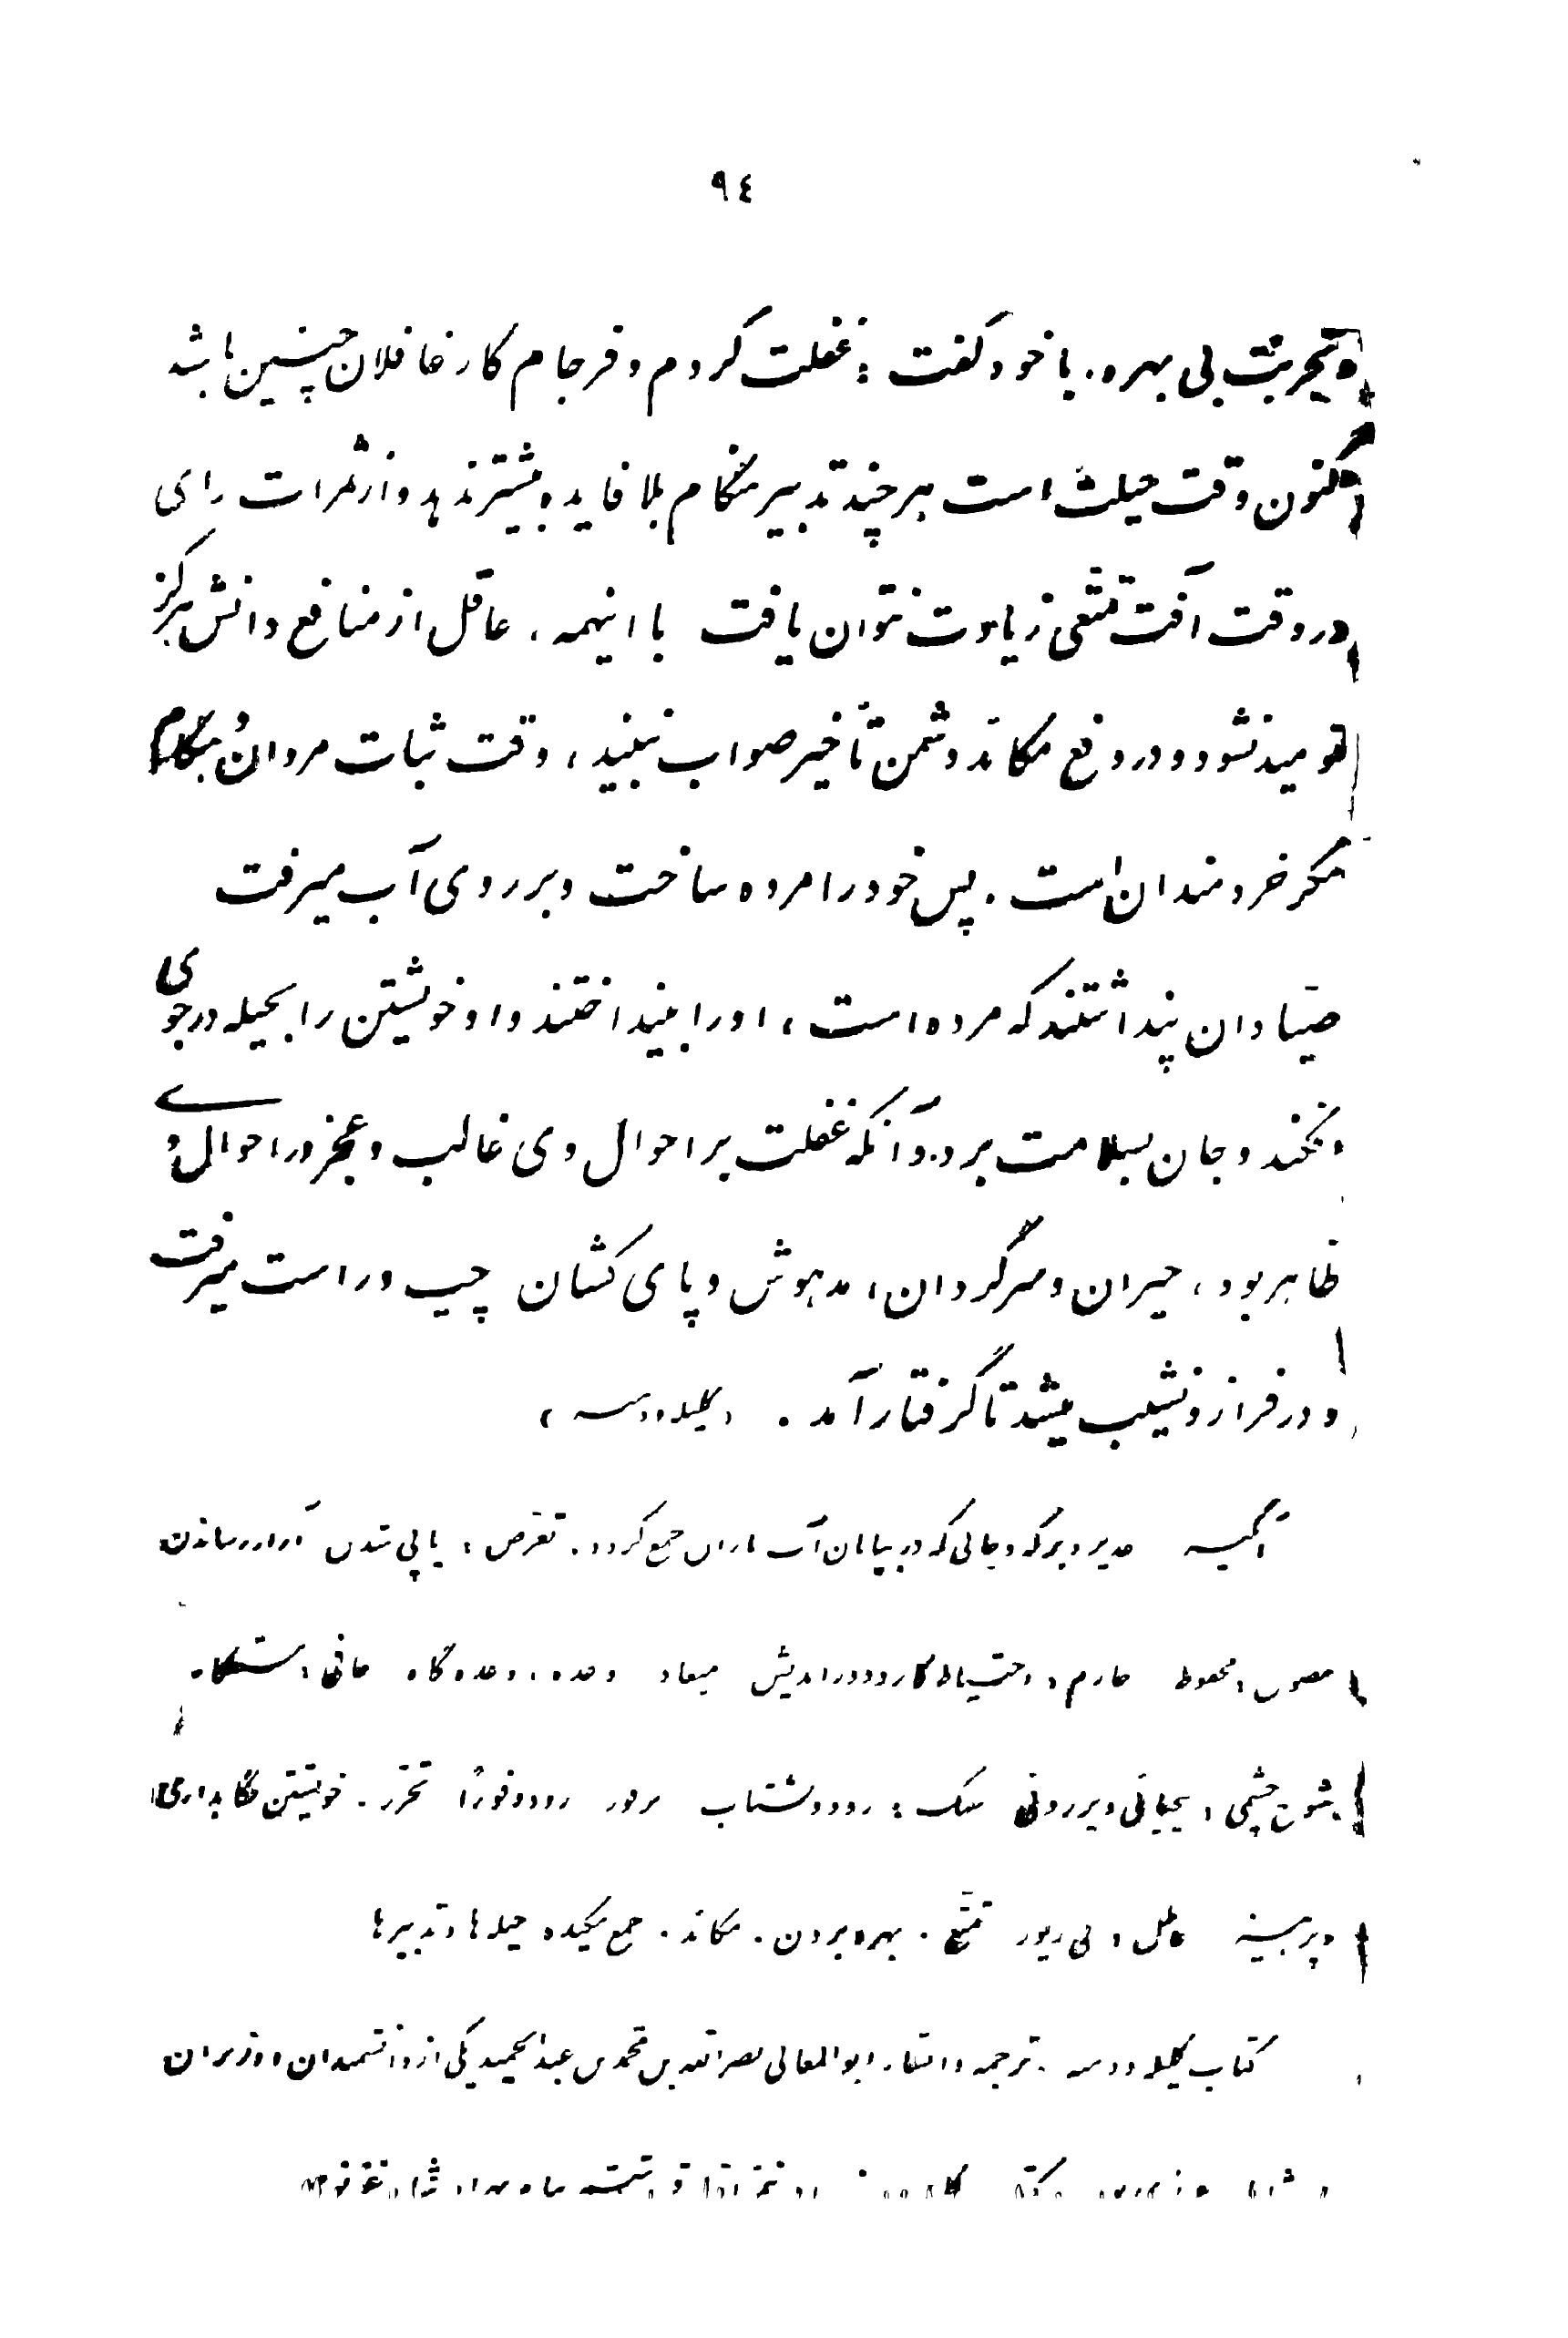 ٩٤
و تجربت بی بهره. با خود گفت : غفلت کردم و فرجام کار غافلان چنین باشد
اکنون وقت حیلت است هر چند تدبیر هنگام بلا فایده بیشتر ندهد و از ثمرات رای
در وقت آفت تمتّعی زیادت نتوان یافت با اینهمه، عاقل از منافع دانش هرگز
نومید نشود و در دفع مکائد دشمن تأخیر صواب نبیند، وقت ثبات مردان و هنگام
مکر خردمندان است. پس خود را مرده ساخت و بر روی آب میرفت
صیّادان پنداشتند که مرده است، او را بینداختند و او خویشتن را بحیله در جوی
افکند و جان بسلامت برد. و آنکه غفلت بر احوال وی غالب و عجز در احوال وی
ظاهر بود، حیران و سرگردان، مدهوش و پای کشان چپ و راست میرفت
و در فراز و نشیب میشد تا گرفتار آمد. (کلیله و دمنه)
آبگیر : غدیر و برکه و جائی که در بیابان آب باران جمع گردد. تعرّض : پاپی شدن آزار رساندن
مصون : محفوظ حازم : احتیاط کار و دوراندیش میعاد : وعده، وعده گاه جافی : ستمکار.
شوخ چشمی : بیحیائی و پرروئی سبک : زود و بشتاب بر فور : زود و فوراً تحرّز. خویشتن نگاهداری
و پرهیز عاطل : بی زیور تمتّع. بهره بردن. مکائد. جمع مکیده حیله ها و تدبیرها
کتاب کلیله و دمنه. ترجمه و انشاء ابوالمعالی نصرالله بن محمد بن عبدالحمید یکی از دانشمندان و وزیران